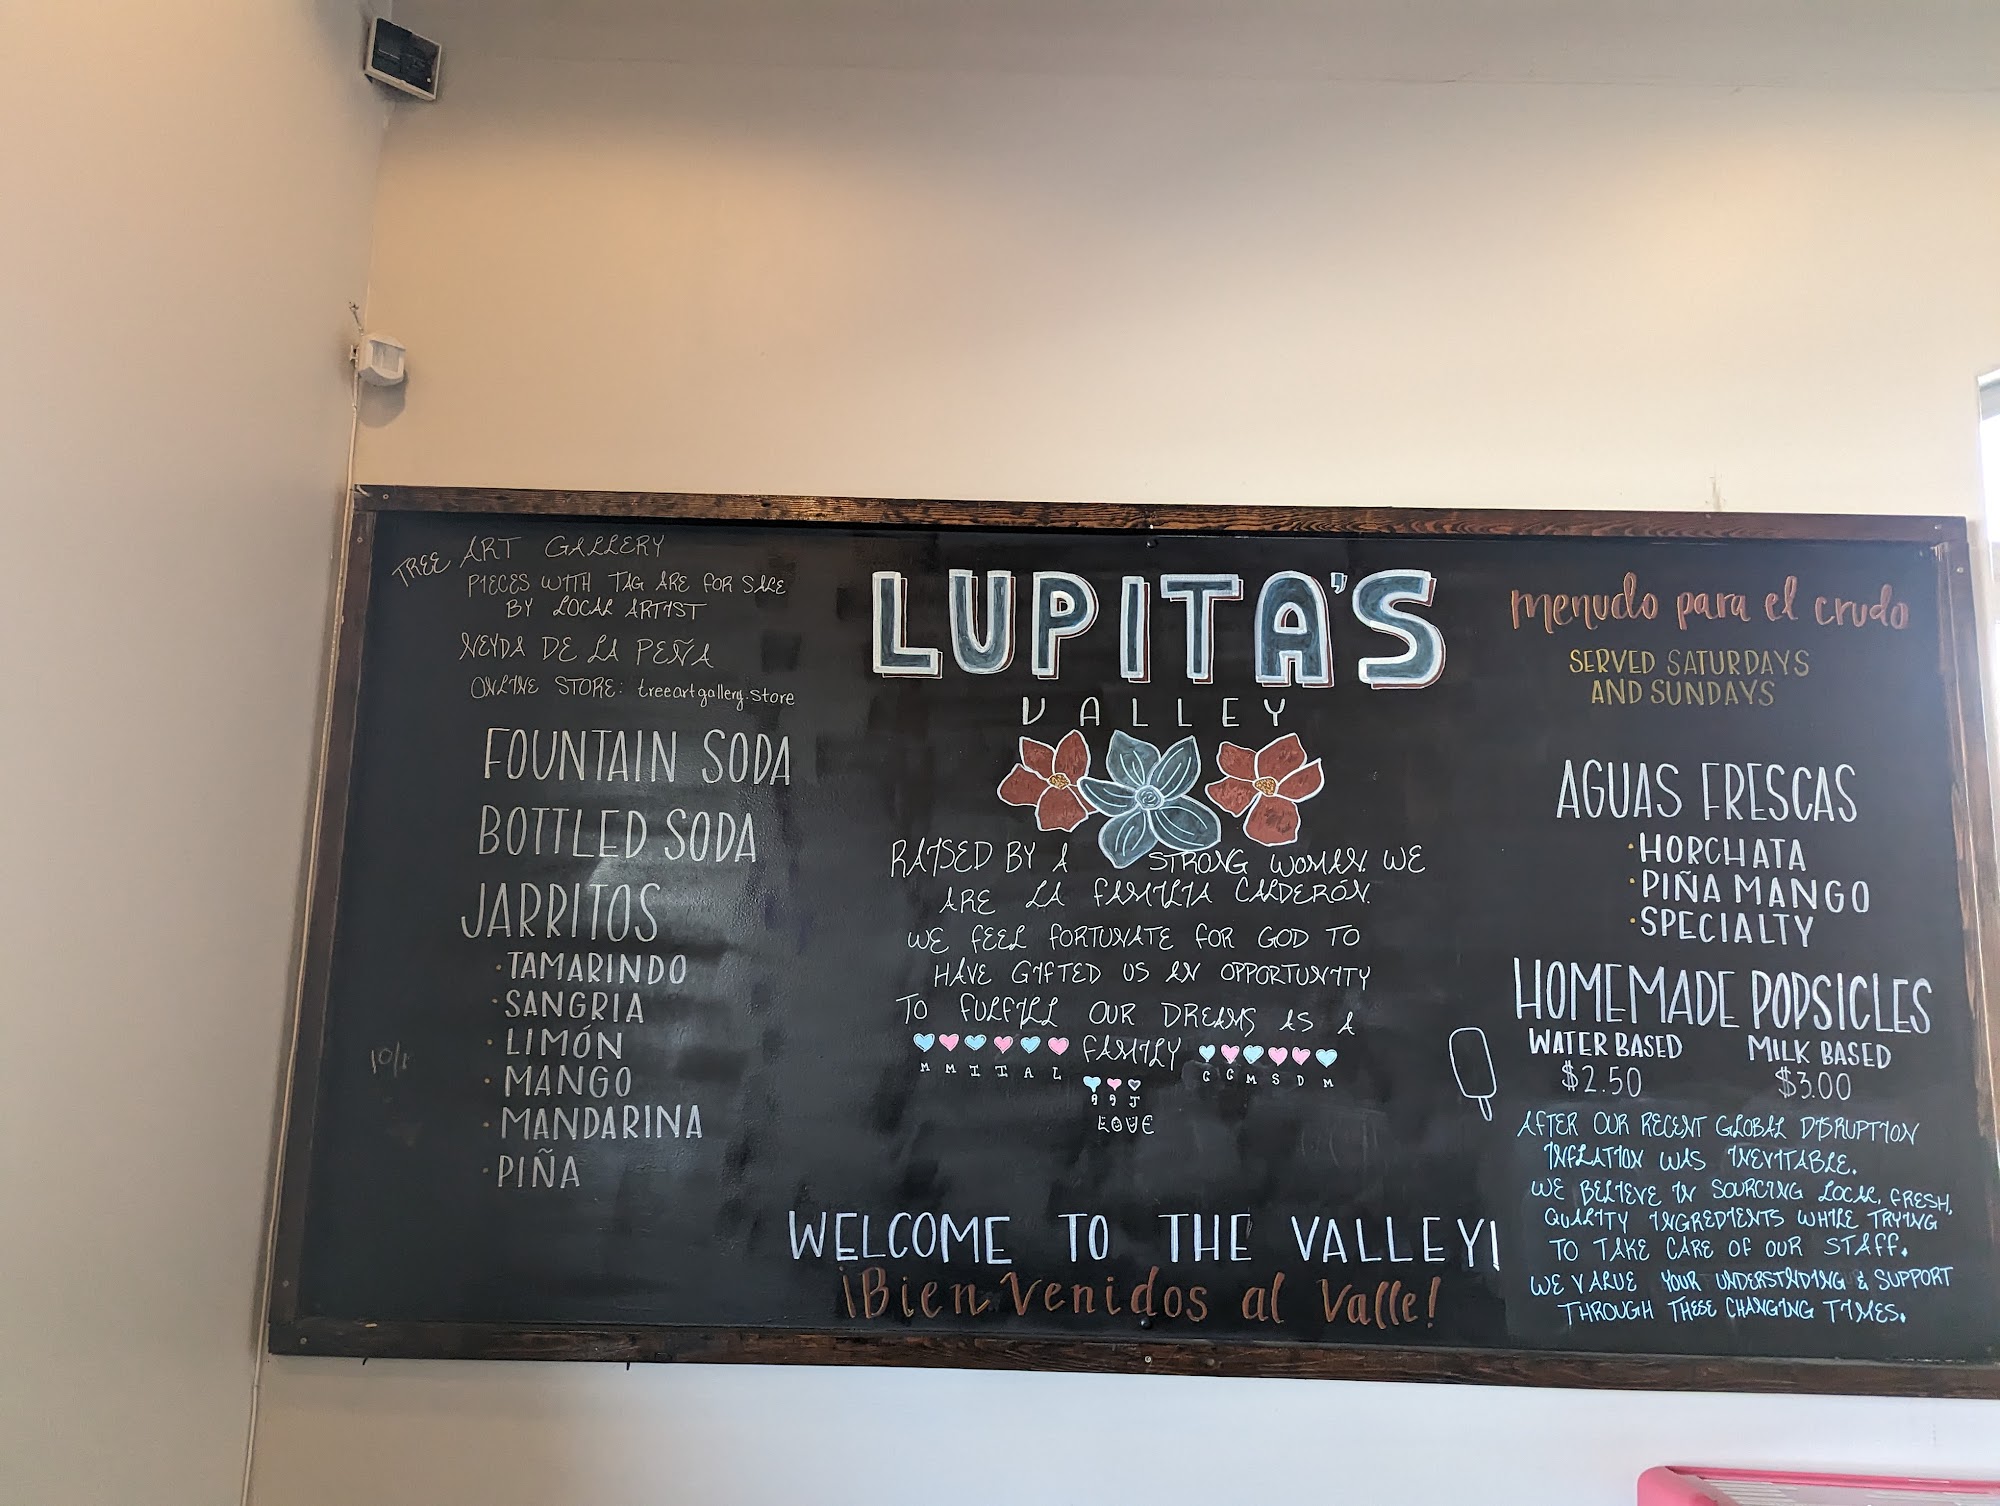 TREE ART GALLERY
PIECES WITH TAG ARE FOR SALE
BY LOCAL ARTIST
NEYDA DE LA PEÑA
ONLINE STORE: treeartgallery.store
FOUNTAIN SODA
BOTTLED SODA
JARRITOS
· TAMARINDO
· SANGRIA
· LIMÓN
· MANGO
· MANDARINA
· PIÑA
10/1
LUPITA'S
VALLEY
RAISED BY A STRONG WOMAN. WE
ARE LA FAMILIA CALDERÓN.
WE FEEL FORTUNATE FOR GOD TO
HAVE GIFTED US AN OPPORTUNITY
TO FULFILL OUR DREAMS AS A
FAMILY
M M I I A L
G G M S D M
LOVE
WELCOME TO THE VALLEY!
¡Bienvenidos al Valle!
menudo para el crudo
SERVED SATURDAYS
AND SUNDAYS
AGUAS FRESCAS
· HORCHATA
· PIÑA MANGO
· SPECIALTY
HOMEMADE POPSICLES
WATER BASED MILK BASED
$2.50 $3.00
AFTER OUR RECENT GLOBAL DISRUPTION
INFLATION WAS INEVITABLE.
WE BELIEVE IN SOURCING LOCAL, FRESH,
QUALITY INGREDIENTS WHILE TRYING
TO TAKE CARE OF OUR STAFF.
WE VALUE YOUR UNDERSTNDING & SUPPORT
THROUGH THESE CHANGING TIMES.